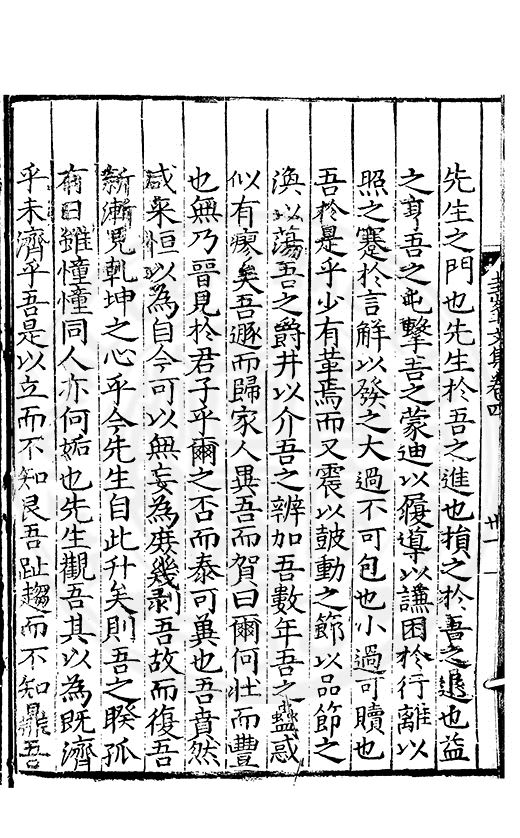 先生之門也先生於吾之進也損之於吾之退也益
之亨吾之屯擊吾之蒙迪以履導以謙困於行離以
照之蹇於言解以發之大過不可包也小過可贖也
吾於是乎少有革焉而又震以鼓動之節以品節之
渙以蕩吾之爵井以介吾之辨加吾數年吾之蠱惑
似有瘳矣吾遯而歸家人異吾而賀曰爾何壯而豐
也無乃晉見於君子乎爾之否而泰可兾也吾賁然
咸來恒以為自今可以無妄為庻幾剥吾故而復吾
新漸見乹坤之心乎今先生自此升矣則吾之睽孤
有日雖憧憧同人亦何姤也先生觀吾其以為既濟
乎未濟乎吾是以立而不知艮吾趾趨而不知鼎吾
文集卷四
卄一